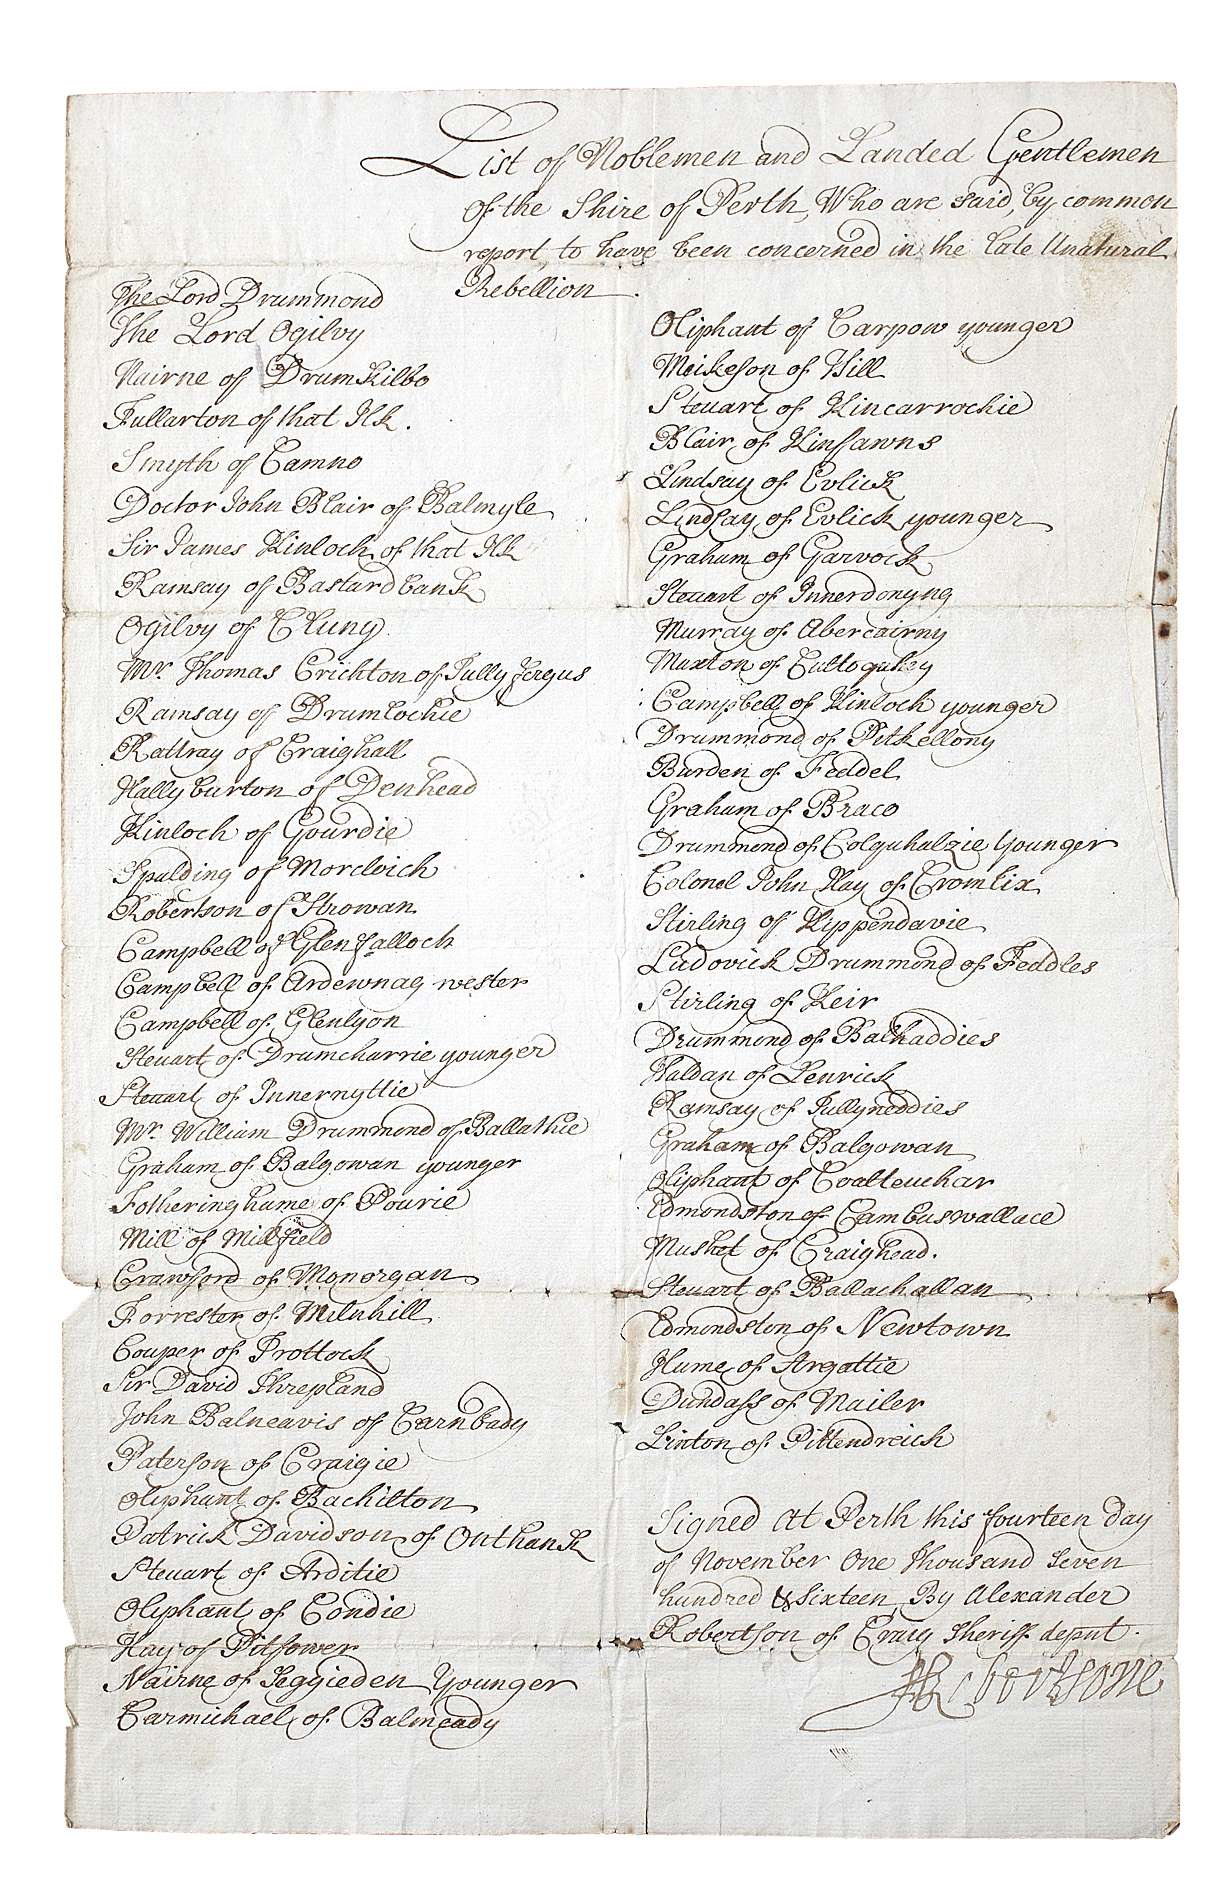 List of Noblemen and Landed Gentlemen
of the Shire of Perth, Who are said, by common
report, to have been concerned in the late Unatural
Rebellion.
The Lord Drummond
The Lord Ogilvy
Nairne of DrumKilbo
Fullarton of that Ilk.
Smyth of Camno
Doctor John Blair of Balmyle
Sir James Kinloch of that Ilk
Ramsay of Bastardbank
Ogilvy of Cluny
Mr. Thomas Crichton of Tullyfergus
Ramsay of Drumlochie
Rattray of Craighall
Hallyburton of Denhead
Kinloch of Gourdie
Spalding of
Robertson of Strowan
Campbell of Glenfalloch
Campbell of Ardewnag wester
Campbell of Glenlyon
Steuart of Drumcharrie younger
Steuart of Innernyttie
Mr. William Drummond of Ballathie
Graham of Balgowan younger
Fotheringhame of Pourie
Mill of Millfield
Crawford of Monorgan
Forrester of Milnhill
Couper of
Sir David Threpland
John Balneavis of Carnbady
Paterson of Craigie
Oliphant of Bachilton
Patrick Davidson of Onthank
Steuart of Arditie
Oliphant of Condie
Hay of Pitfower
Nairne of Seggieden Younger
Carmichael of Balmeady
Oliphant of Carpow younger
Meikeson of Hill
Steuart of Kincarrochie
Blair of Kinfawns
Lindsay of Evlick
Lindsay of Evlick younger
Graham of Garvock
Steuart of Innerdonyng
Murray of Abercairny
Maxton of Cultoquhey
Campbell of Kinloch younger
Drummond of Pitkellony
Burden of Feddel
Graham of Braco
Drummond of Colquhalzie Younger
Colonel John Hay of Cromlix
Stirling of Kippendavie
Ludovick Drummond of Feddles
Stirling of Keir
Drummond of Balhaddies
Haldan of Lenrick
Ramsay of Tullyneddies
Graham of Balgowan
Oliphant of Coalteuchar
Edmondston of Cambuswallace
Mushet of Craighead.
Steuart of Ballachallan
Edmondston of Newtown
Hume of Argattie
Dundass of Mailer
Linton of Pittendreich
Signed at Perth this fourteen Day
of November One Thousand Seven
hundred & Sixteen By Alexander
Robertson of Craig Sheriff deput.
ARobertsone